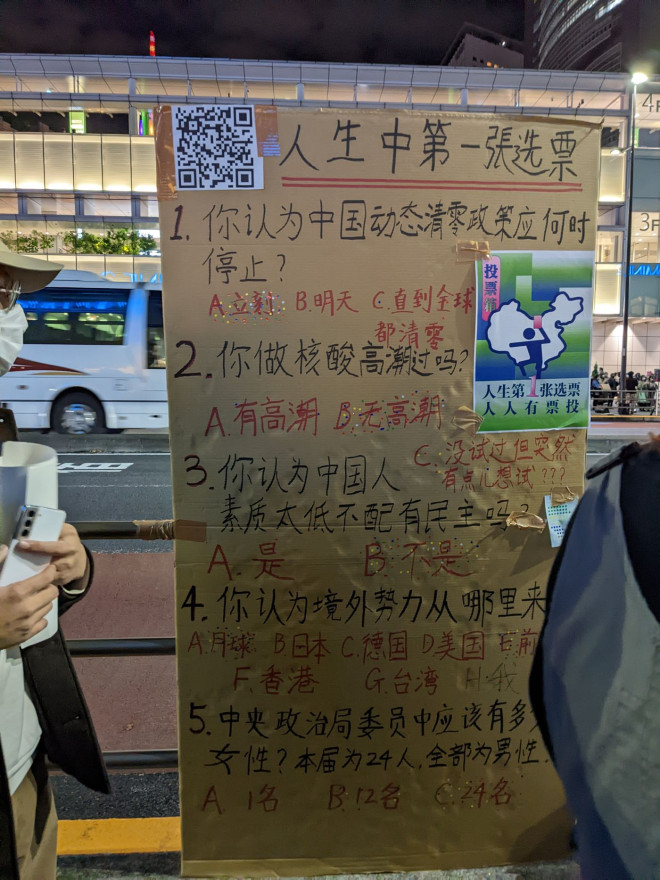 人生中第一張选票
1. 你认为中国动态清零政策应何时
停止？
A.立刻 B.明天 C.直到全球
都清零
投票箱
人生第1张选票
人人有票投
2. 你做核酸高潮过吗？
A.有高潮 B.无高潮
C.没试过但突然
有点儿想试???
3. 你认为中国人
素质太低不配有民主吗？
A. 是 B.不是
4. 你认为境外势力从哪里来
A.月球 B日本 C.德国 D美国 E前
F.香港 G.台湾 H.我
5. 中央政治局委员中应该有多
女性？本届为24人,全部为男性.
A. 1名 B.12名 C.24名
4F
3F